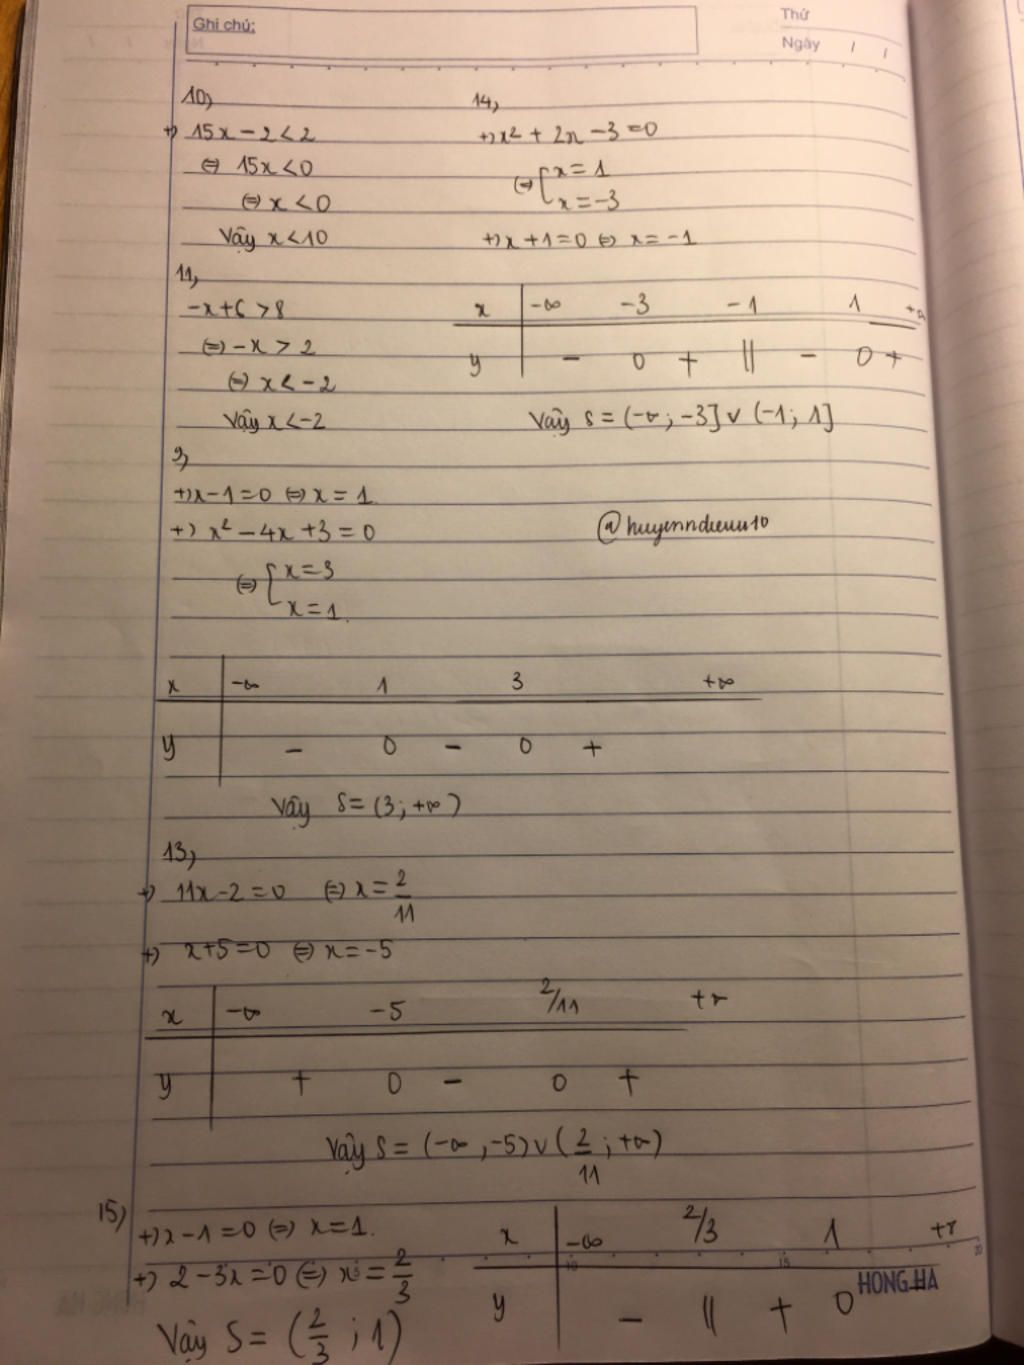 Ghi chú:
Thứ
Ngày / /
10)
+) 15x - 2 < 2
⇔ 15x < 0
⇔ x < 0
Vậy x < 10
14,
+) x² + 2x - 3 = 0
⇔ [ x = 1
x = -3
+) x + 1 = 0 ⇔ x = -1
x -∞ -3 -1 1 +∞
y - 0 + || - 0 +
Vậy S = (-∞; -3] ∪ (-1; 1]
11,
-x + 6 > 8
⇔ -x > 2
⇔ x < -2
Vậy x < -2
9)
+) x - 1 = 0 ⇔ x = 1
+) x² - 4x + 3 = 0
⇔ [ x = 3
x = 1.
@huyenndieuu10
x -∞ 1 3 +∞
y - 0 - 0 +
Vậy S = (3; +∞)
13)
+) 11x - 2 = 0 ⇔ x = 2/11
+) x + 5 = 0 ⇔ x = -5
x -∞ -5 2/11 +∞
y + 0 - 0 +
Vậy S = (-∞, -5) ∪ (2/11; +∞)
15)
+) x - 1 = 0 ⇔ x = 1.
+) 2 - 3x = 0 ⇔ x = 2/3
Vậy S = (2/3; 1)
x -∞ 2/3 1 +∞
y - || + 0
10 15 20
HONG HA